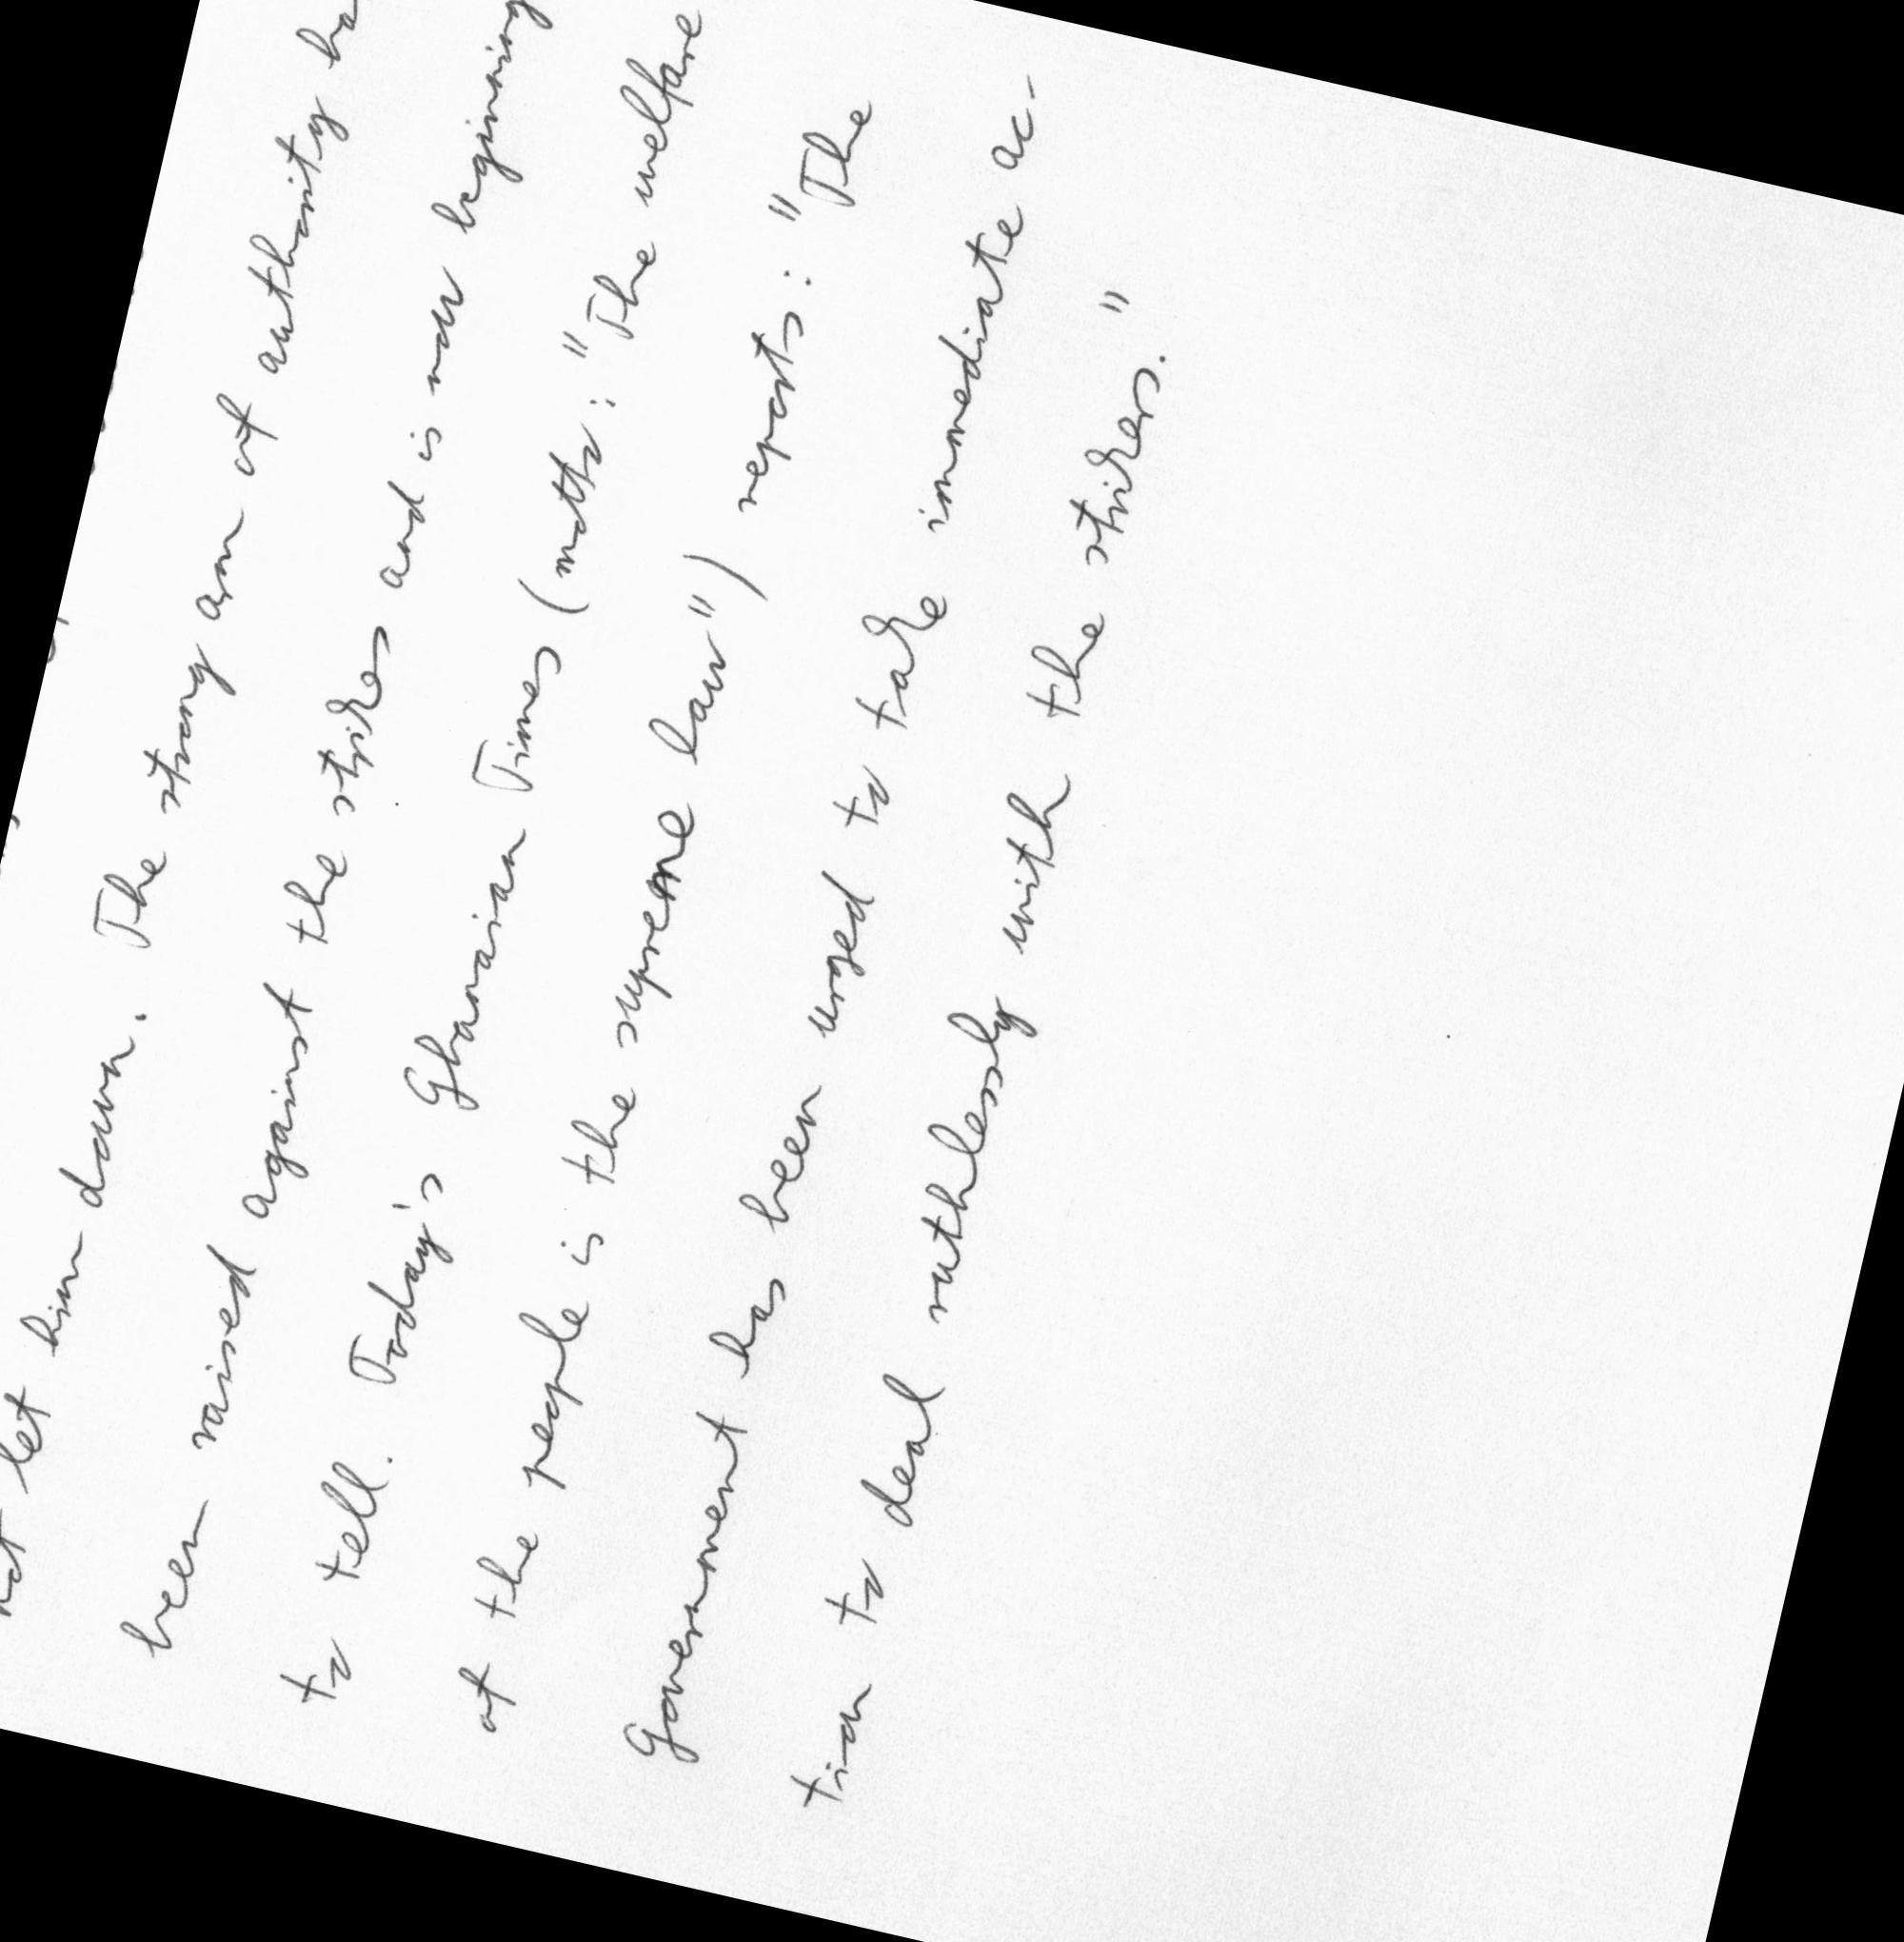 not let him down. The strong arm of authority ha
been raised against the strikes and is now beginning
to tell. Today's Ghanaian Times (motto: "The welfare
of the people is the supreme law") reports: "The
Government has been urged to take immediate ac-
tion to deal ruthlessly with the strikers."